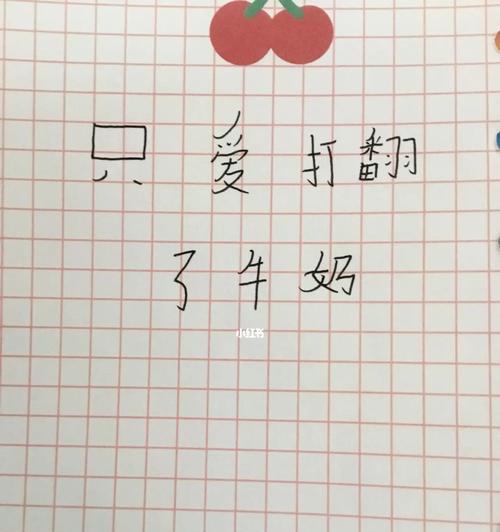 只爱打翻
了牛奶
小红书